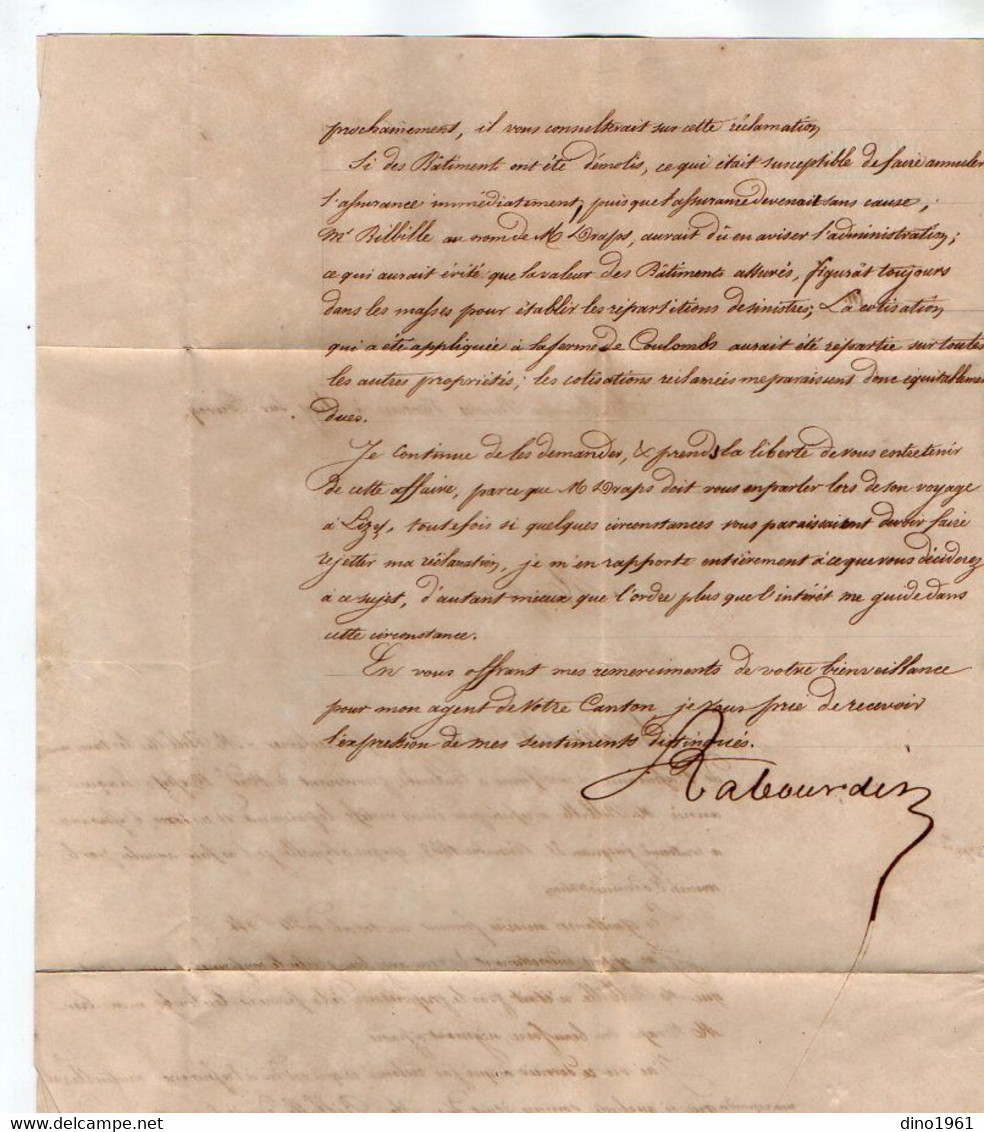 prochainement, il vous consulterait sur cette réclamation
Si des Bâtiment ont été démolis, ce qui était susceptible de faire annuler
l'assurance immédiatement, puisque l'assurance devenait sans cause,
Mr Bilbille au nom de M Draps, aurait dû en aviser l'administration;
ce qui aurait évité que la valeur des Bâtiments assurés, figurât toujours
dans les masses pour établir les répartitions de sinistres; La cotisation
qui a été appliquée à la ferme de Coulombs aurait été répartie sur toutes
les autres propriétés; les cotisations réclamées me paraissent donc équitablement
dues.
Je continue de les demander, & prends la liberté de vous entretenir
de cette affaire, parce que M Draps doit vous en parler lors de son voyage
à Lizy, toutefois si quelques circonstances vous paraissaient devoir faire
rejetter ma réclamation, je m'en rapporte entièrement à ce que vous déciderez
à ce sujet, d'autant mieux que l'ordre plus que l'intérêt me guide dans
cette circonstance.
En vous offrant mes remerciments de votre bienveillance
pour mon agent de votre Canton, je vous prie de recevoir
l'expression de mes sentiments distingués.
Rabourdin
dino1961